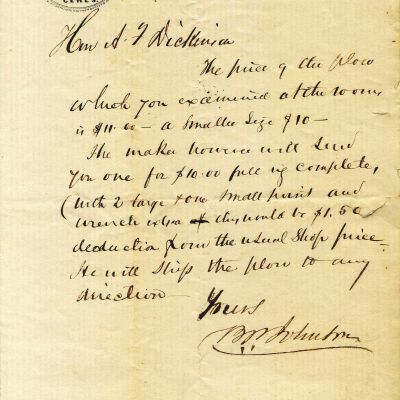 CERES
Hon A. F Dickinson
The price of the plow
which you examined at the rooms
is $11.00 — a smaller size $10 —
The maker however will send
you one for $10.00 full rig complete,
(with 2 large & one small point and
wrench extra this would be $1.50
deduction from the usual shop price —
He will ship the plow to any
direction —
Yours
B P Johnson